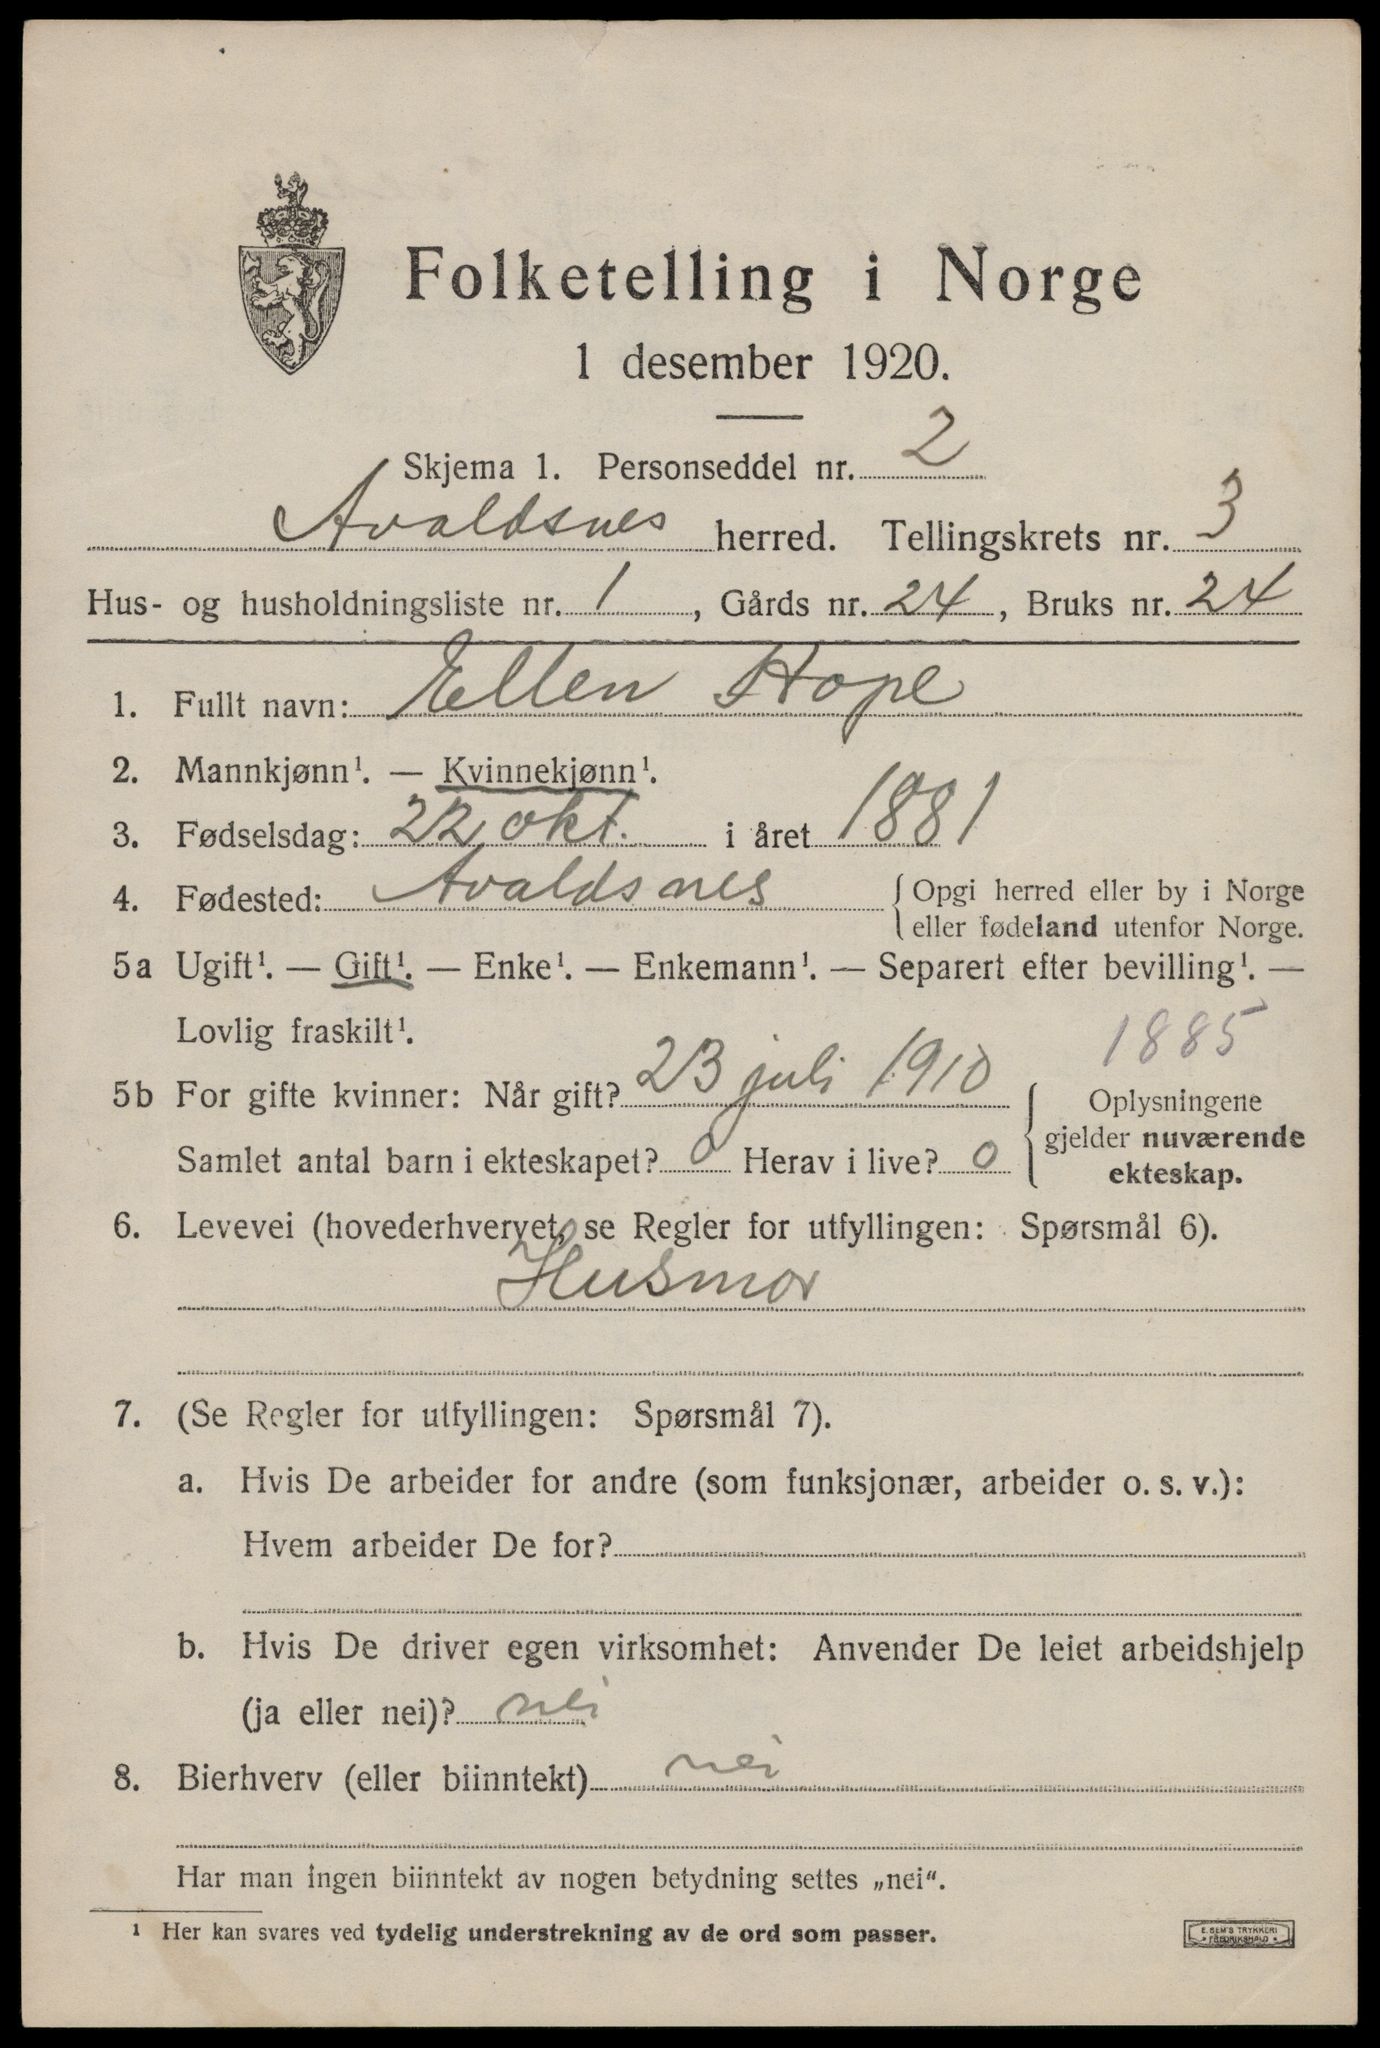 Folketelling i Norge
1 desember 1920.
Skjema 1. Personseddel nr. 2
Avaldsnes herred. Tellingskrets nr. 3
Hus- og husholdningsliste nr. 1, Gårds nr. 24, Bruks nr. 24
1. Fullt navn: Ellen Hope
2. Mannkjønn¹. — Kvinnekjønn¹.
3. Fødselsdag: 22 okt. i året 1881
4. Fødested: Avaldsnes { Opgi herred eller by i Norge
eller fødeland utenfor Norge.
5a Ugift¹. — Gift¹. — Enke¹. — Enkemann¹. — Separert efter bevilling¹. —
Lovlig fraskilt¹.
1885
5b For gifte kvinner: Når gift? 23 juli 1910 { Oplysningene
gjelder nuværende
ekteskap.
Samlet antal barn i ekteskapet? 0 Herav i live? 0
6. Levevei (hovederhvervet, se Regler for utfyllingen: Spørsmål 6).
Husmor
7. (Se Regler for utfyllingen: Spørsmål 7).
a. Hvis De arbeider for andre (som funksjonær, arbeider o. s. v.):
Hvem arbeider De for?
b. Hvis De driver egen virksomhet: Anvender De leiet arbeidshjelp
(ja eller nei)? nei
8. Bierhverv (eller biinntekt) nei
Har man ingen biinntekt av nogen betydning settes „nei“.
¹ Her kan svares ved tydelig understrekning av de ord som passer.
E. SEM'S TRYKKERI
FREDRIKSHALD